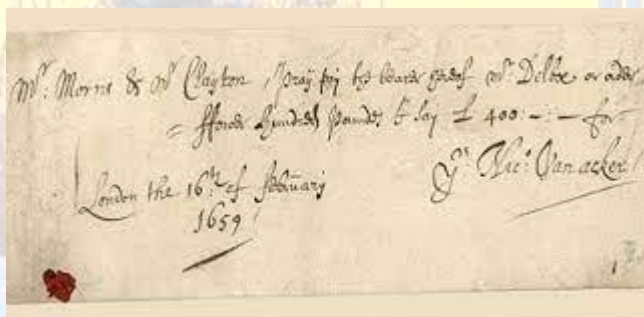 Mr. Morris & Mr Clayton, pray pay the bearer hereof Mr. Delboe or order
= ffower hundred pounds I say £ 400: – : – for
Yrs Nico: Vanacker
London the 16th of february
1659